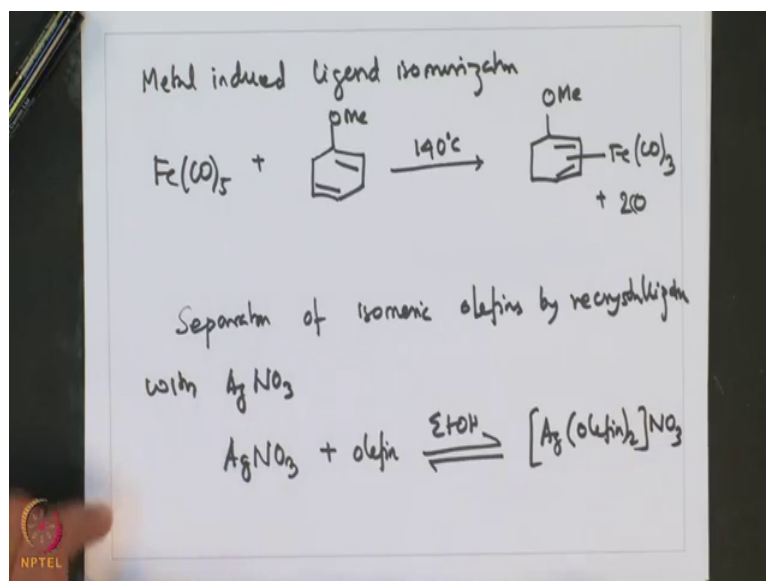 Metal induced ligand isomerizatn
OMe
OMe
Fe(CO)5 + 140°C Fe(CO)3
+ 2CO
Separatn of isomeric olefins by recrystallizatn
with AgNO3
AgNO3 + olefin EtOH [Ag(olefin)2]NO3
NPTEL